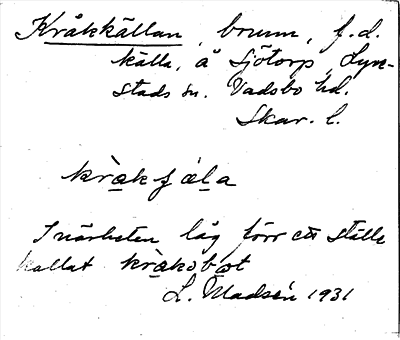 Kråkkällan, brunn, f.d.
källa, å Sjötorp, Lyre-
stads sn. Vadsbo hd.
Skar. l.
kràkʃäla
I närheten låg förr ett ställe
kallat kràkobot
L. Madsén 1931